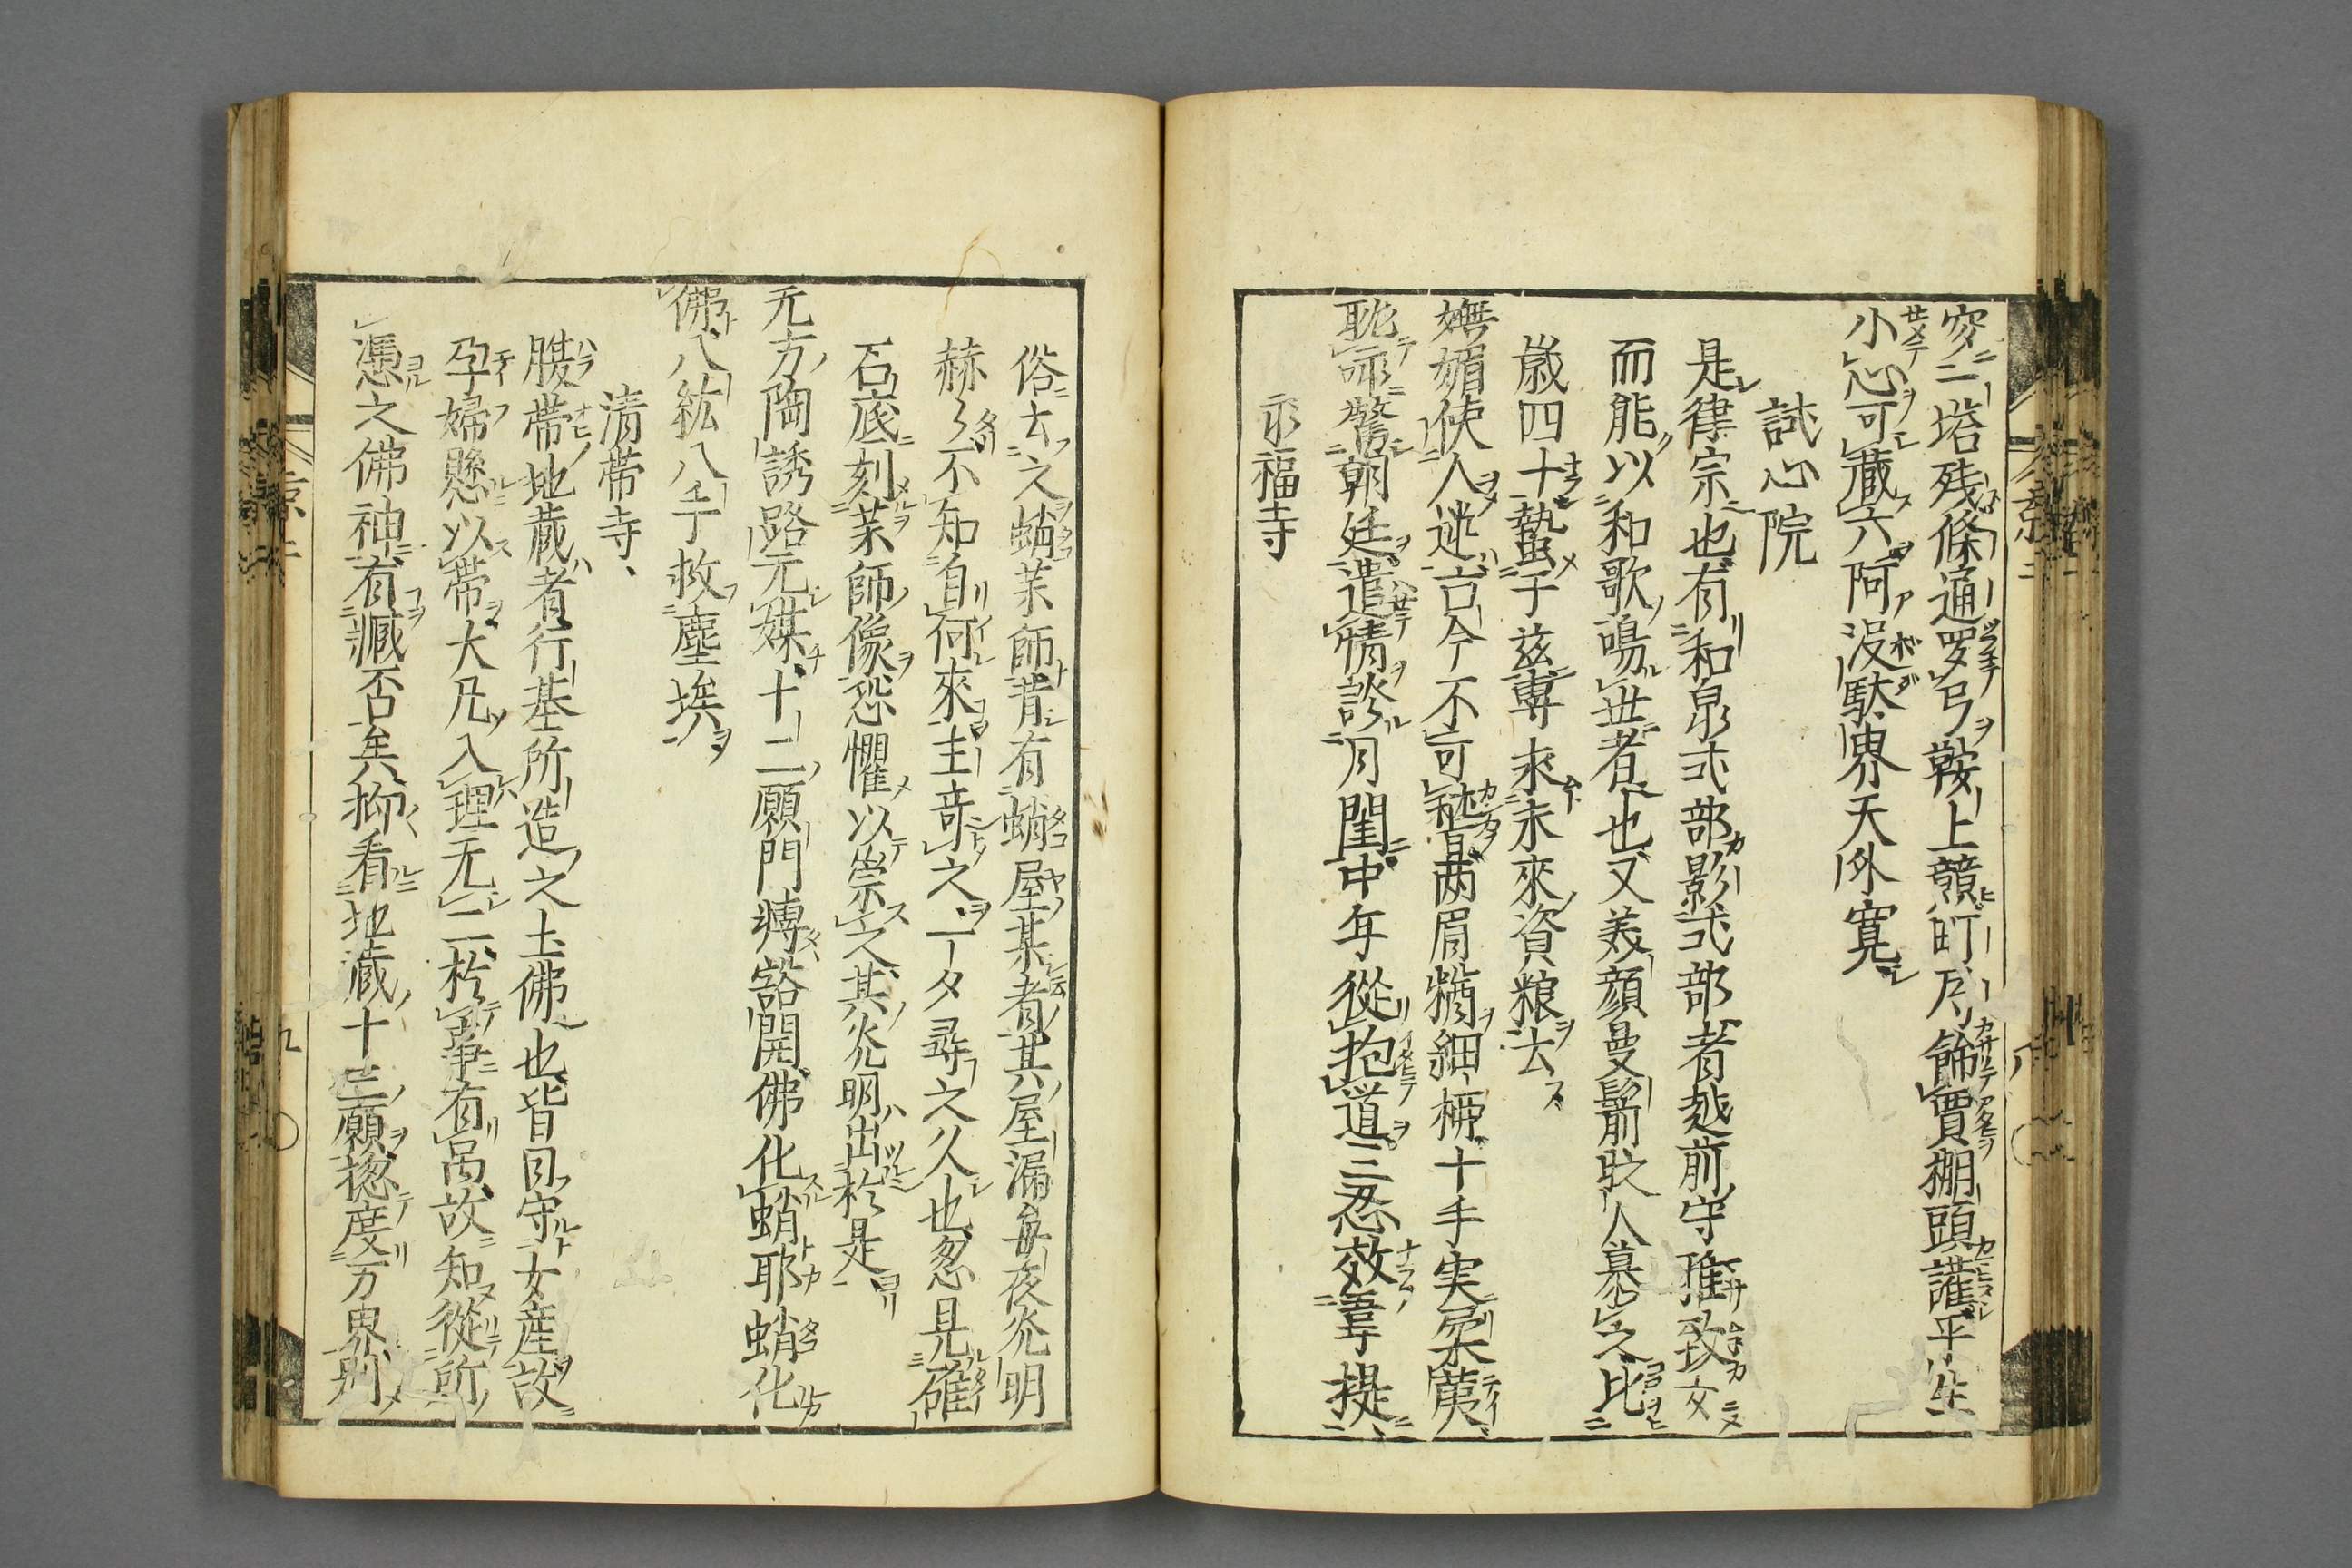 安二塔残條通罗弓鞍上贛町尽飾賈棚頭護平生
小心可蔵六阿没駄界天外寛
誠心院
是律宗也有和泉式部影式部者越前守雅致女
而能以和歌鳴世者也又美顔曼鬋駃人慕之比
歳四十蟄于茲專求未來資粮去
嫵媚使人迷言今不可䭫両眉蛾細栖十手実柔荑
耽命驚朝廷遣情談月閨中年從抱道三忍效韋提
永福寺
俗去之蛸茉師昔有蛸屋某者其屋漏毎夜光明
赫々不知自何來主竒之一夕尋之久也忽見確
石底刻茉師像恐懼以崇之其光明出於是
无方陶誘路元媒十二願門塼豁開佛化蛸耶蛸化
佛八紘八千救塵埃
清帯寺
腹帯地蔵者行基所造之土佛也皆目守女産故
孕婦懸以帯大凡入理无二於事有異故知從所
憑之佛神有臧否矣抑看地蔵十三願揔度万界別
京二
九